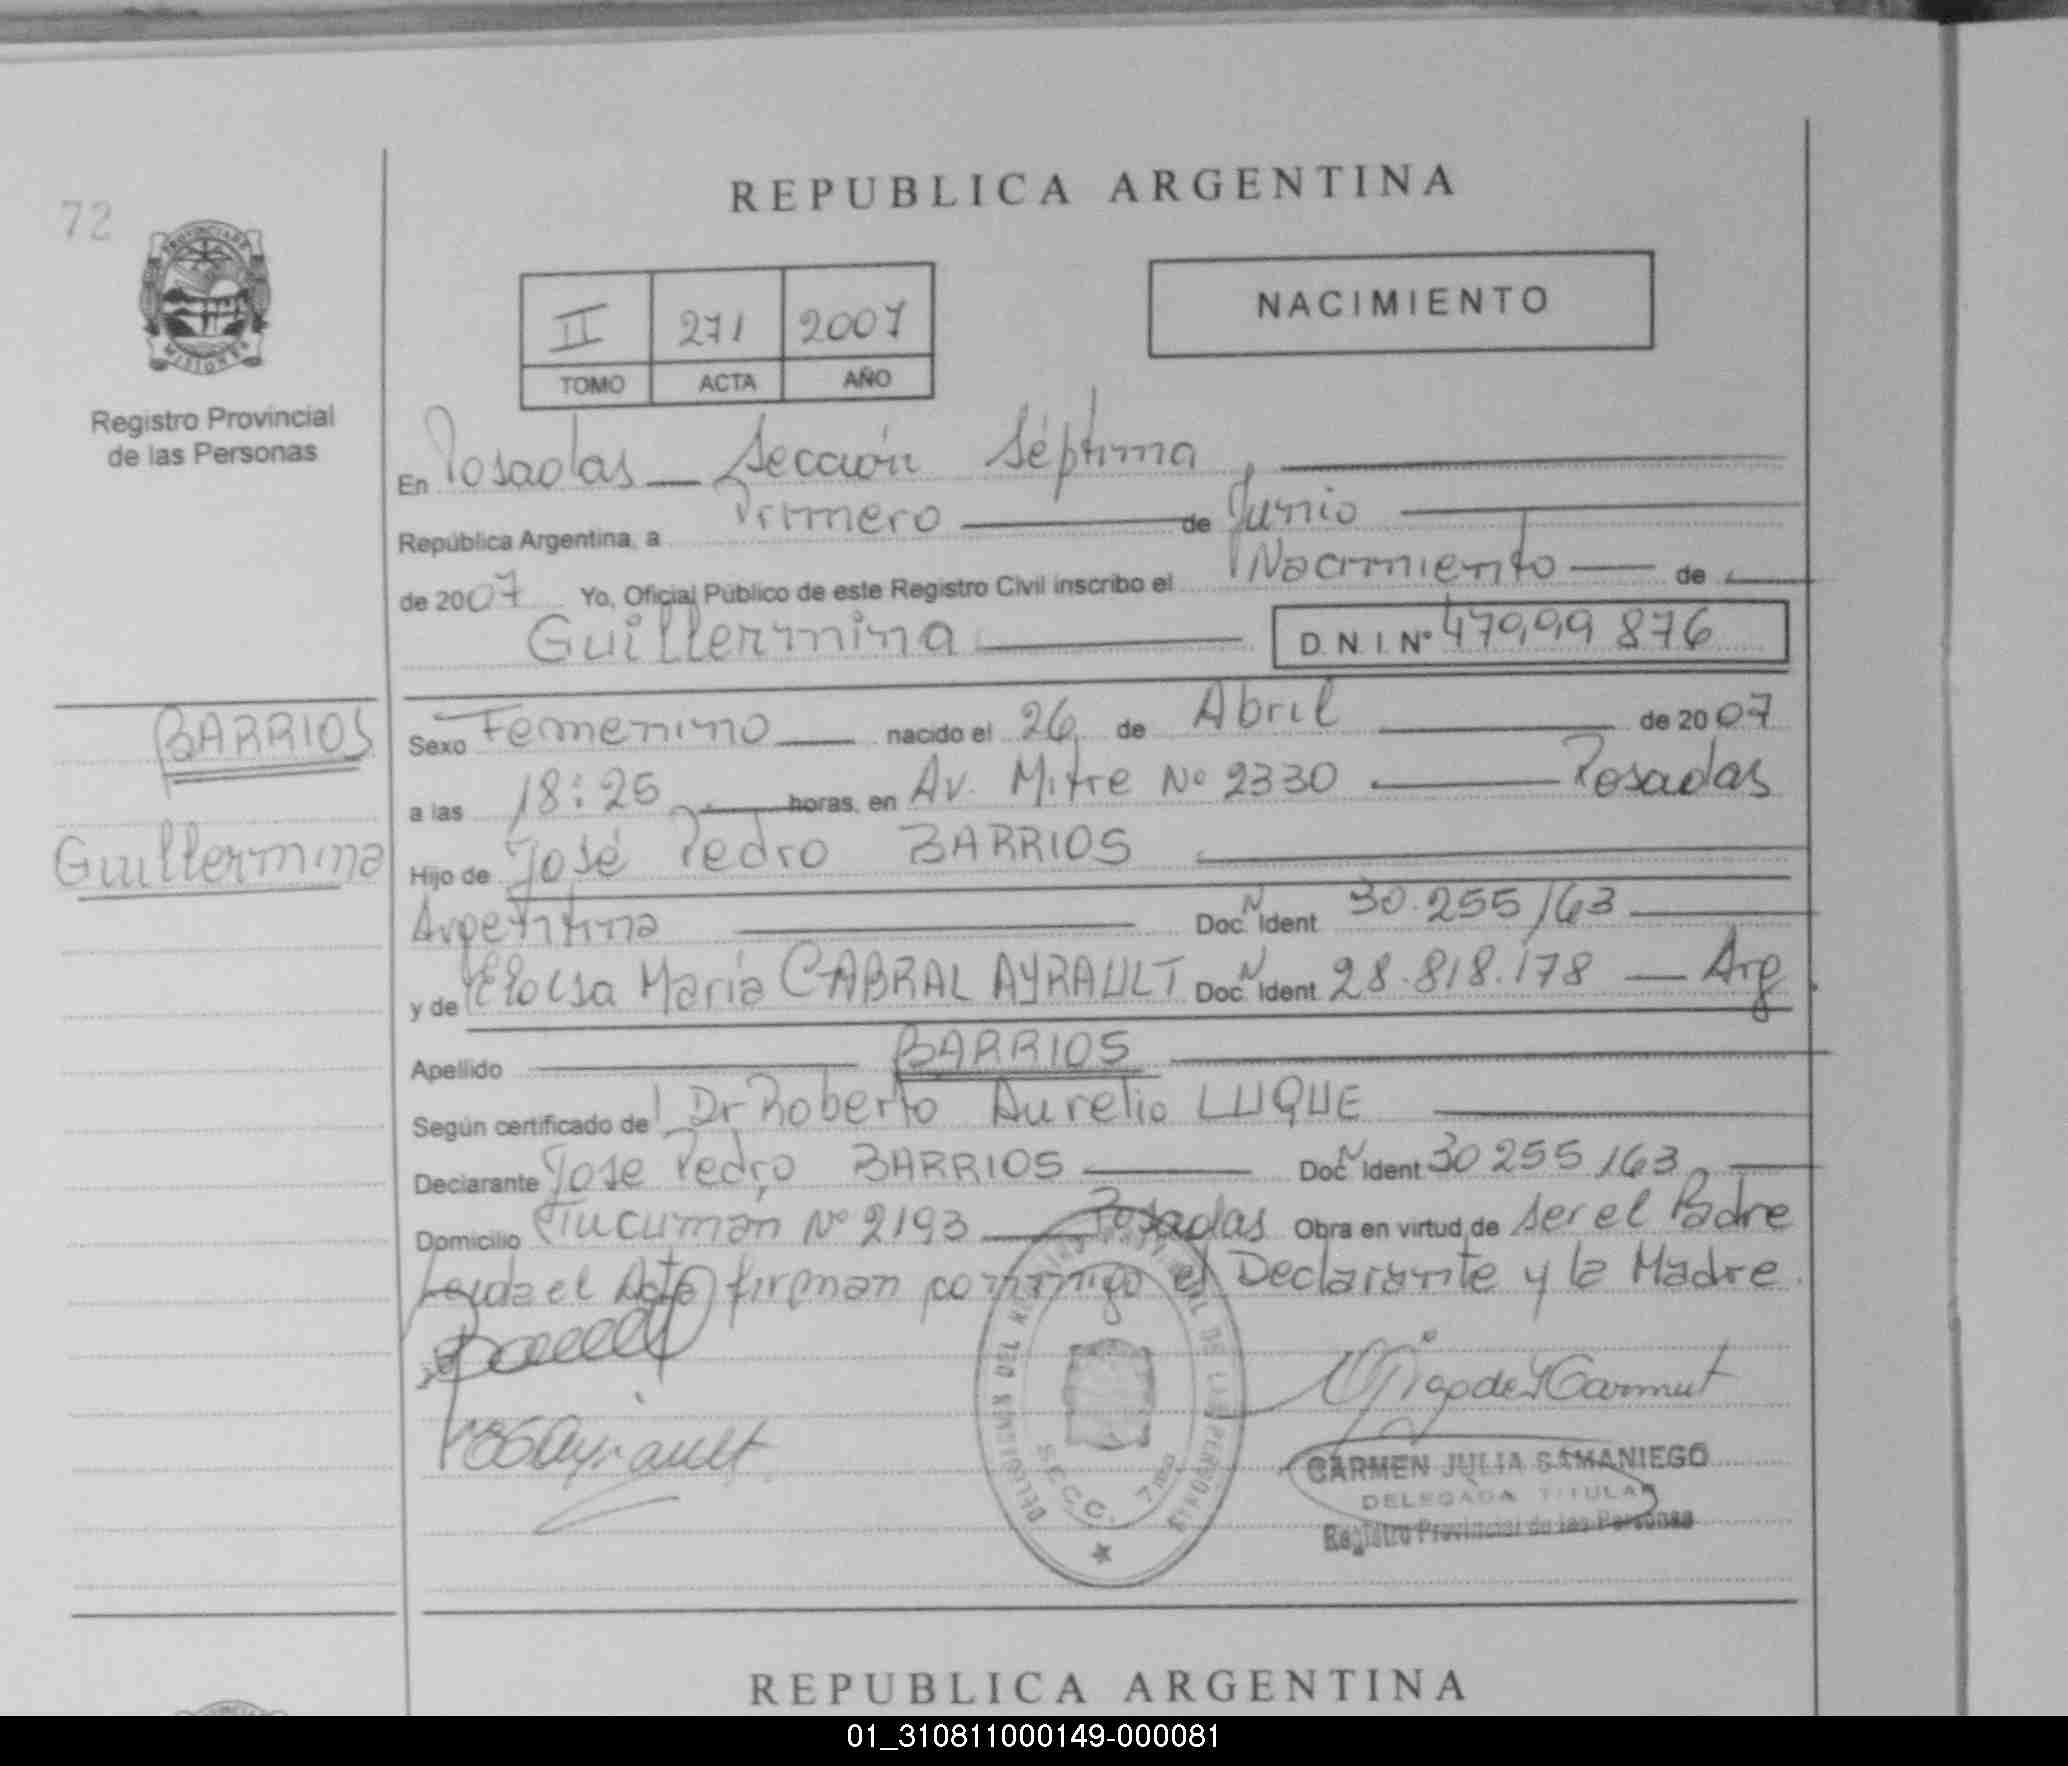 72
REPUBLICA ARGENTINA
PROVINCIA DE
MISIONES
Registro Provincial
de las Personas
II 271 2007
TOMO ACTA AÑO
NACIMIENTO
En Posadas — Sección Séptima
República Argentina, a Primero de Junio
de 2007 Yo, Oficial Público de este Registro Civil inscribo el Nacimiento de
Guillermina D.N.I. Nº 47.999.876
BARRIOS
Guillermina
Sexo Femenino nacido el 26 de Abril de 2007
a las 18:25 horas, en Av. Mitre Nº 2330 Posadas
Hijo de José Pedro BARRIOS
Argentina Doc. N Ident 30.255.163
y de Eloisa María CABRAL AYRAULT Doc. N Ident 28.818.178 — Arg.
Apellido BARRIOS
Según certificado de Dr Roberto Aurelio LUQUE
Declarante Jose Pedro BARRIOS Doc. N Ident 30 255 163
Domicilio Tucumán Nº 2193 Posadas Obra en virtud de ser el Padre
Leyda el Acta firman conmigo el Declarante y la Madre.
Ayrault
DE LAS PERSONAS
SECC. 7ma
CARMEN JULIA SAMANIEGO
DELEGADA TITULAR
Registro Provincial de las Personas
REPUBLICA ARGENTINA
01_310811000149-000081